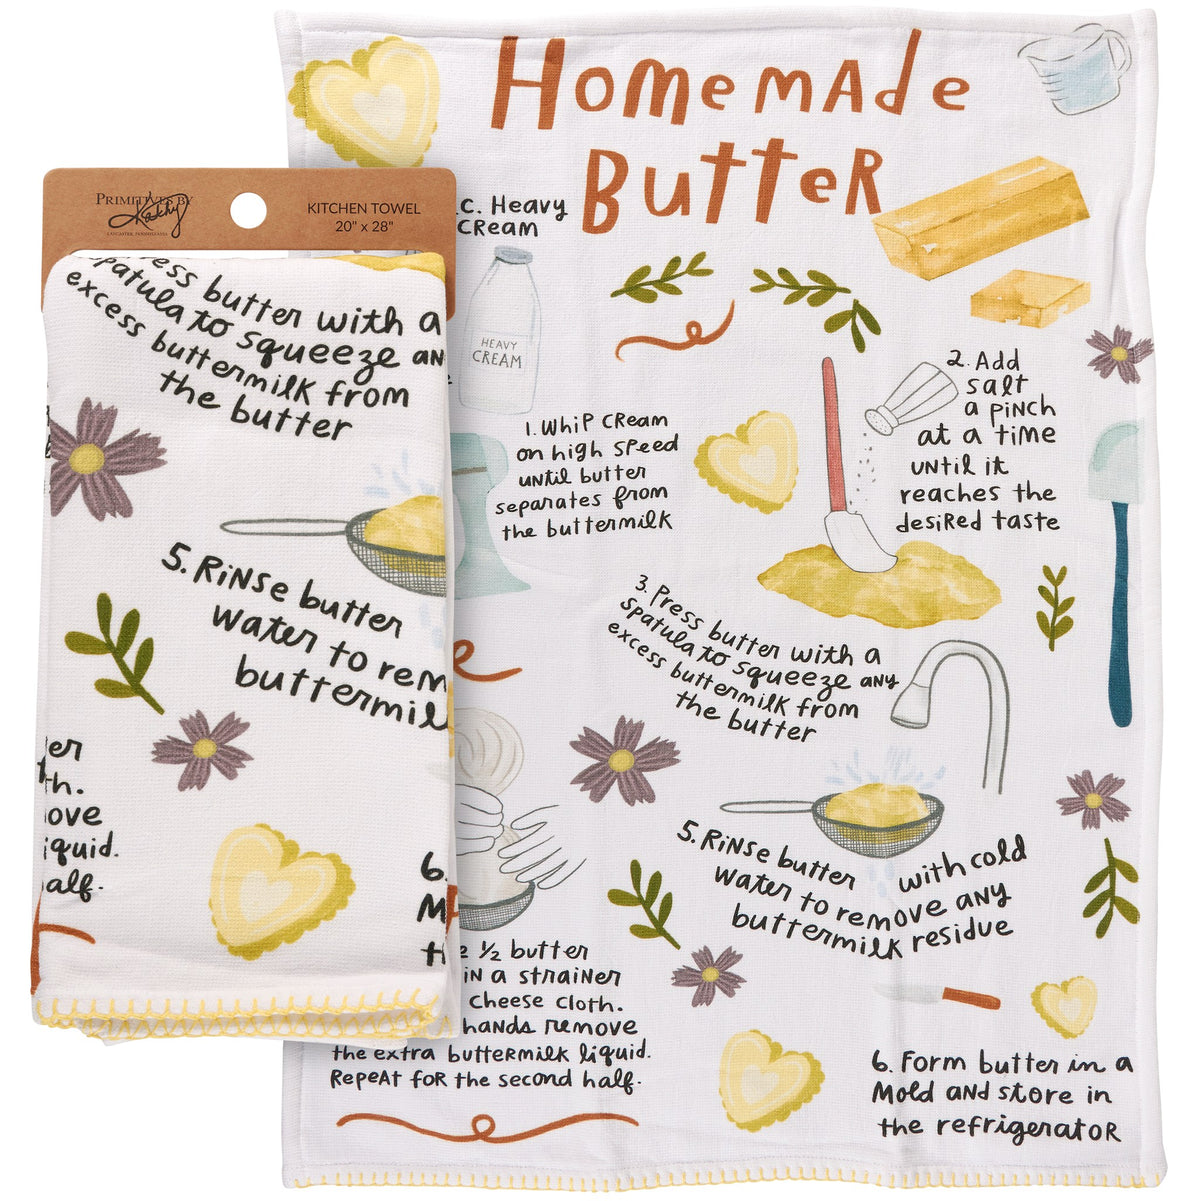 Homemade
Butter
PRIMITIVES BY
Kathy
LANCASTER, PENNSYLVANIA
KITCHEN TOWEL
20" x 28"
Press butter with a
spatula to squeeze an
excess buttermilk from
the butter
5. Rinse butter
water to rem
buttermil
th.
iquid.
alf.
6.
M
th
c. Heavy
Cream
HEAVY
CREAM
1. Whip cream
on high speed
until butter
separates from
the buttermilk
2. Add
salt
a pinch
at a time
until it
reaches the
desired taste
3. Press butter with a
spatula to squeeze any
excess buttermilk from
the butter
½ butter
in a strainer
cheese cloth.
hands remove
the extra buttermilk liquid.
Repeat for the second half.
5. Rinse butter with cold
water to remove any
buttermilk residue
6. Form butter in a
mold and store in
the refrigerator